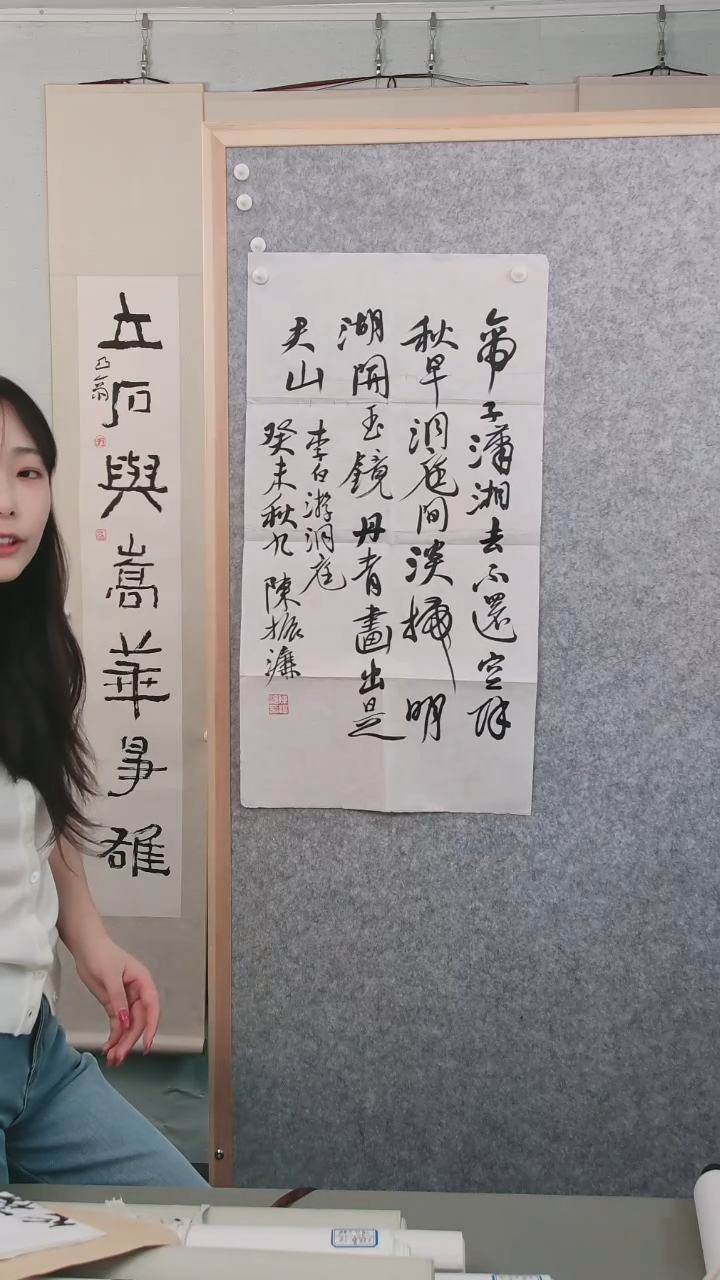 帝子瀟湘去不還空餘
秋早洞庭間淡掃明
湖開玉鏡丹青畫出是
君山
李白游洞庭
癸未秋九 陳振濂
立石與嵩華爭雄